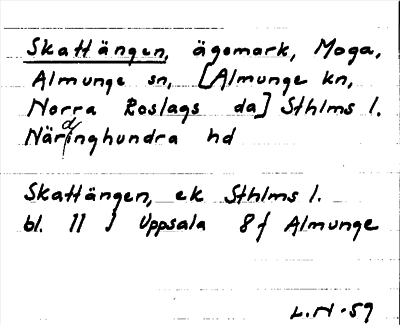 Skattängen, ägomark, Moga,
Almunge sn, [Almunge kn,
Norra Roslags da] Sthlms l.
Närdinghundra hd
Skattängen, ek Sthlms l.
bl. 11 J Uppsala 8f Almunge
L.N-59